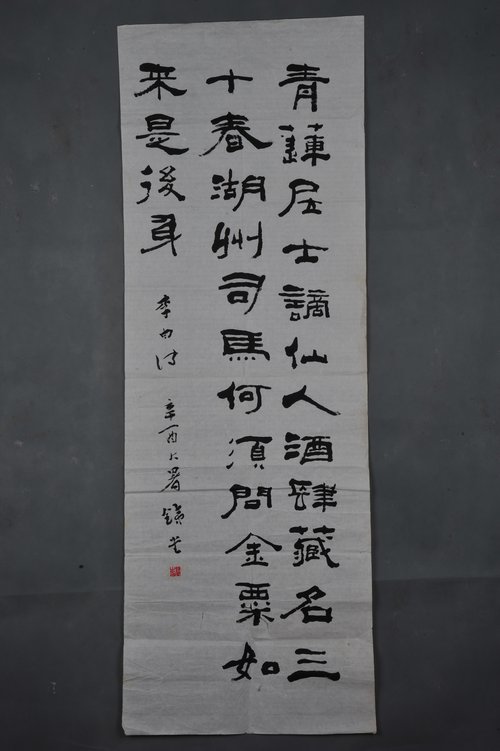 青蓮居士謫仙人酒肆藏名三
十春湖州司馬何須問金粟如
来是後身
李白诗 辛酉大暑